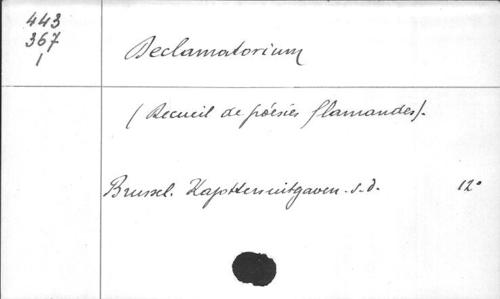 443
367
1
Declamatorium
(Recueil de poésies flamandes).
Brussel. Kajottersuitgaven. s.d. 12°